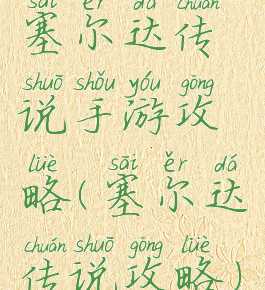 sāi ěr dá chuán
塞尔达传
shuō shǒu yóu gōng
说手游攻
lüè sāi ěr dá
略(塞尔达
chuán shuō gōng lüè
传说攻略)